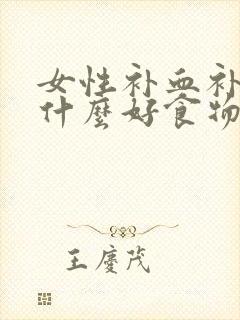 女性补血补
什麼好食物
王慶茂